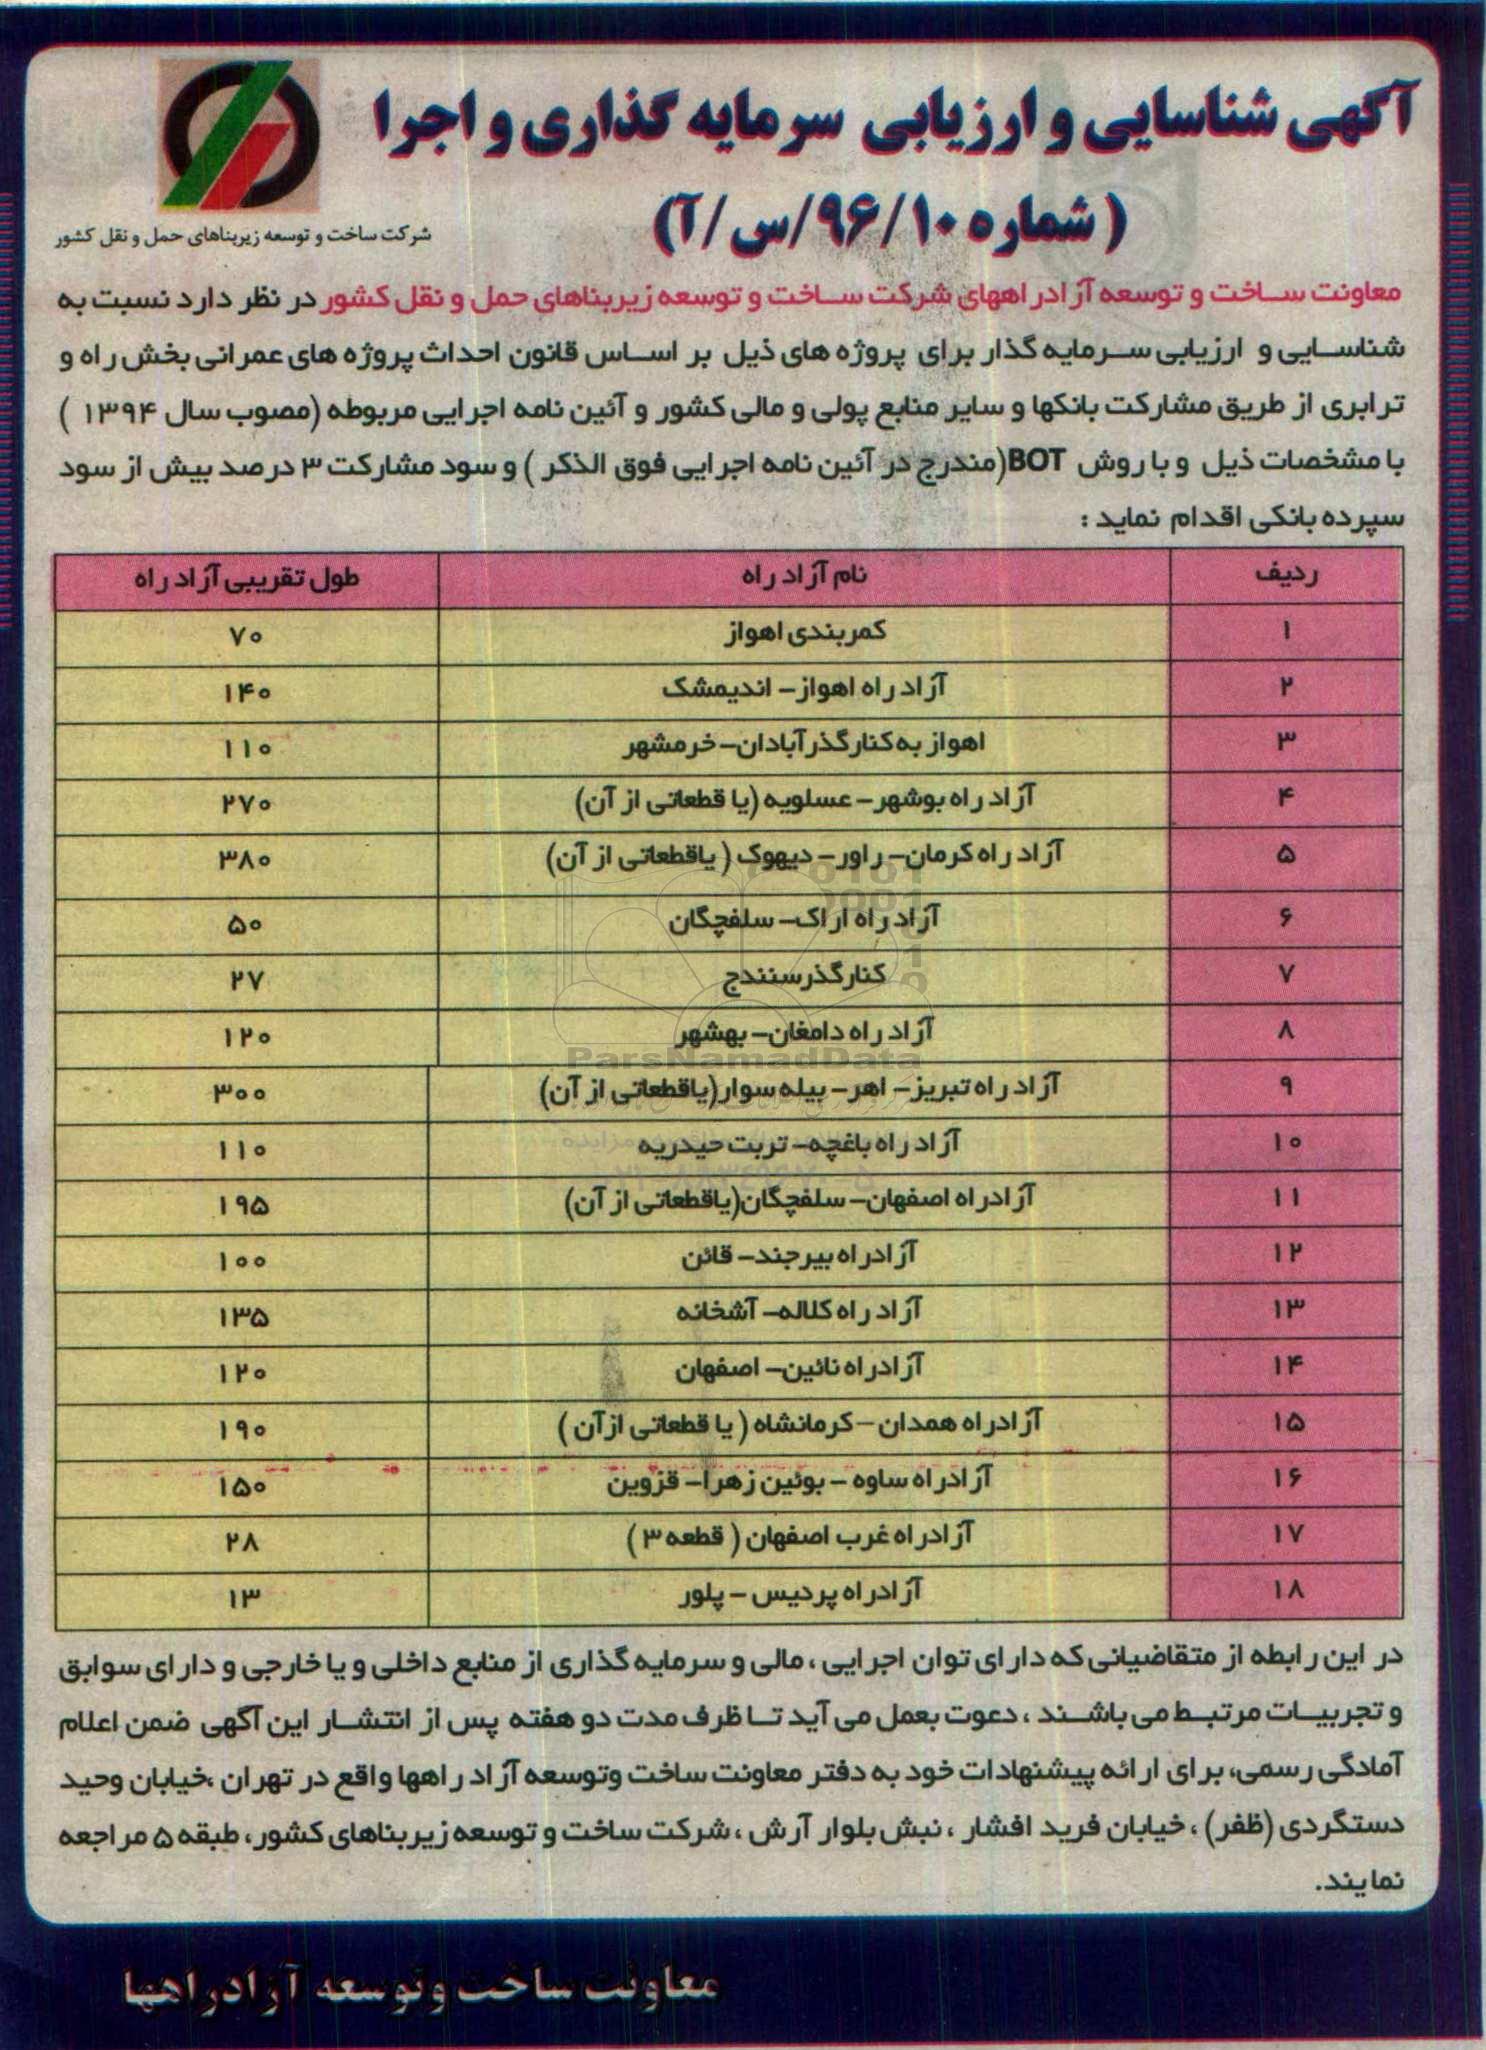 آگهی شناسایی و ارزیابی سرمایه گذاری و اجرا
(شماره ۹۶/۱۰/س/آ)
شرکت ساخت و توسعه زیربناهای حمل و نقل کشور
معاونت ساخت و توسعه آزادراههای شرکت ساخت و توسعه زیربناهای حمل و نقل کشور در نظر دارد نسبت به
شناسایی و ارزیابی سرمایه گذار برای پروژه های ذیل بر اساس قانون احداث پروژه های عمرانی بخش راه و
ترابری از طریق مشارکت بانکها و سایر منابع پولی و مالی کشور و آئین نامه اجرایی مربوطه (مصوب سال ۱۳۹۴ )
با مشخصات ذیل و با روش BOT(مندرج در آئین نامه اجرایی فوق الذکر ) و سود مشارکت ۳ درصد بیش از سود
سپرده بانکی اقدام نماید :
ردیف نام آزاد راه طول تقریبی آزاد راه
۱ کمربندی اهواز ۷۰
۲ آزاد راه اهواز- اندیمشک ۱۴۰
۳ اهواز به کنارگذر آبادان-خرمشهر ۱۱۰
۴ آزاد راه بوشهر- عسلویه (یا قطعاتی از آن) ۲۷۰
۵ آزاد راه کرمان- راور- دیهوک ( یاقطعاتی از آن) ۳۸۰
۶ آزاد راه اراک- سلفچگان ۵۰
۷ کنارگذر سنندج ۲۷
۸ آزاد راه دامغان- بهشهر ۱۲۰
۹ آزاد راه تبریز- اهر- بیله سوار(یاقطعاتی از آن) ۳۰۰
۱۰ آزاد راه باغچه- تربت حیدریه ۱۱۰
۱۱ آزادراه اصفهان- سلفچگان(یاقطعاتی از آن) ۱۹۵
۱۲ آزادراه بیرجند- قائن ۱۰۰
۱۳ آزاد راه کلاله- آشخانه ۱۳۵
۱۴ آزادراه نائین- اصفهان ۱۲۰
۱۵ آزادراه همدان- کرمانشاه ( یا قطعاتی ازآن ) ۱۹۰
۱۶ آزادراه ساوه - بوئین زهرا- قزوین ۱۵۰
۱۷ آزادراه غرب اصفهان ( قطعه ۳ ) ۲۸
۱۸ آزادراه پردیس - پلور ۱۳
ParsNamadData
در این رابطه از متقاضیانی که دارای توان اجرایی ، مالی و سرمایه گذاری از منابع داخلی و یا خارجی و دارای سوابق
و تجربیات مرتبط می باشند ، دعوت بعمل می آید تا ظرف مدت دو هفته پس از انتشار این آگهی ضمن اعلام
آمادگی رسمی، برای ارائه پیشنهادات خود به دفتر معاونت ساخت وتوسعه آزاد راهها واقع در تهران ،خیابان وحید
دستگردی (ظفر) ، خیابان فرید افشار ، نبش بلوار آرش ، شرکت ساخت و توسعه زیربناهای کشور، طبقه ۵ مراجعه
نمایند.
معاونت ساخت وتوسعه آزادراهها